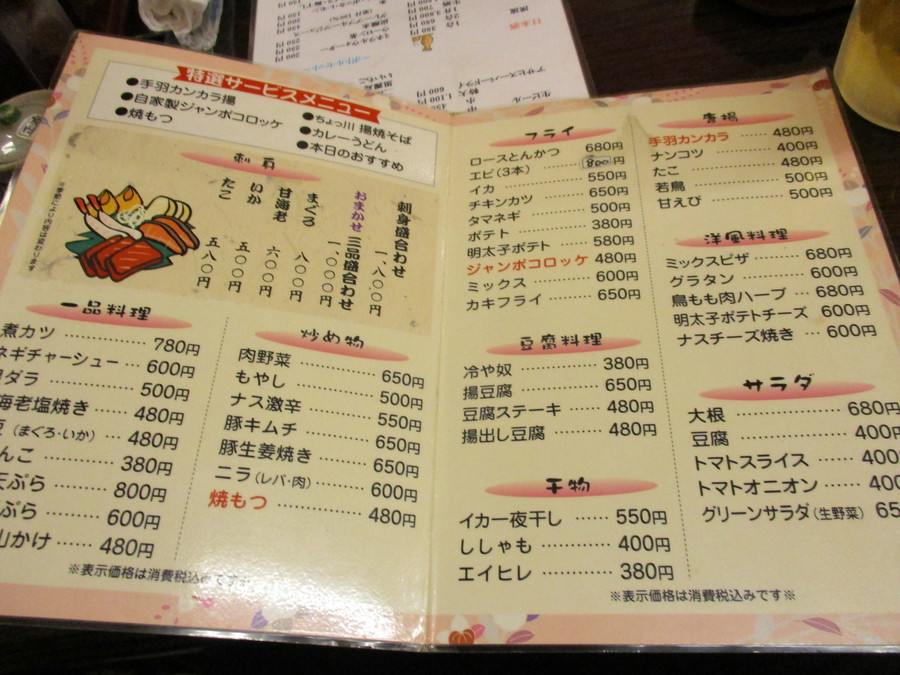 特選サービスメニュー
●手羽カンカラ揚
●自家製ジャンボコロッケ
●焼もつ
●ちょっ川 揚焼そば
●カレーうどん
●本日のおすすめ
刺身
刺身盛合わせ 一、八〇〇円
おまかせ三品盛合わせ 一、〇〇〇円
まぐろ 八〇〇円
甘海老 六〇〇円
いか 五〇〇円
たこ 五八〇円
※季節により内容は変わります
一品料理
煮カツ 780円
ネギチャーシュー 600円
ダラ 500円
海老塩焼き 480円
(まぐろ・いか) 480円
んこ 380円
天ぷら 800円
ぷら 600円
山かけ 480円
※表示価格は消費税込みです※
炒め物
肉野菜 650円
もやし 500円
ナス激辛 550円
豚キムチ 650円
豚生姜焼き 650円
ニラ(レバ・肉) 600円
焼もつ 480円
フライ
ロースとんかつ 680円
エビ(3本) 800円
イカ 550円
チキンカツ 650円
タマネギ 500円
ポテト 380円
明太子ポテト 580円
ジャンボコロッケ 480円
ミックス 600円
カキフライ 650円
豆腐料理
冷や奴 380円
揚豆腐 650円
豆腐ステーキ 480円
揚出し豆腐 480円
干物
イカ一夜干し 550円
ししゃも 400円
エイヒレ 380円
唐揚
手羽カンカラ 480円
ナンコツ 400円
たこ 480円
若鳥 500円
甘えび 500円
洋風料理
ミックスピザ 680円
グラタン 600円
鳥もも肉ハーブ 680円
明太子ポテトチーズ 600円
ナスチーズ焼き 600円
サラダ
大根 680円
豆腐 400円
トマトスライス 400
トマトオニオン 400
グリーンサラダ(生野菜) 65
※表示価格は消費税込みです※
日本酒
生ビール
アサヒスーパードライ
特大 1,100円
中 600円